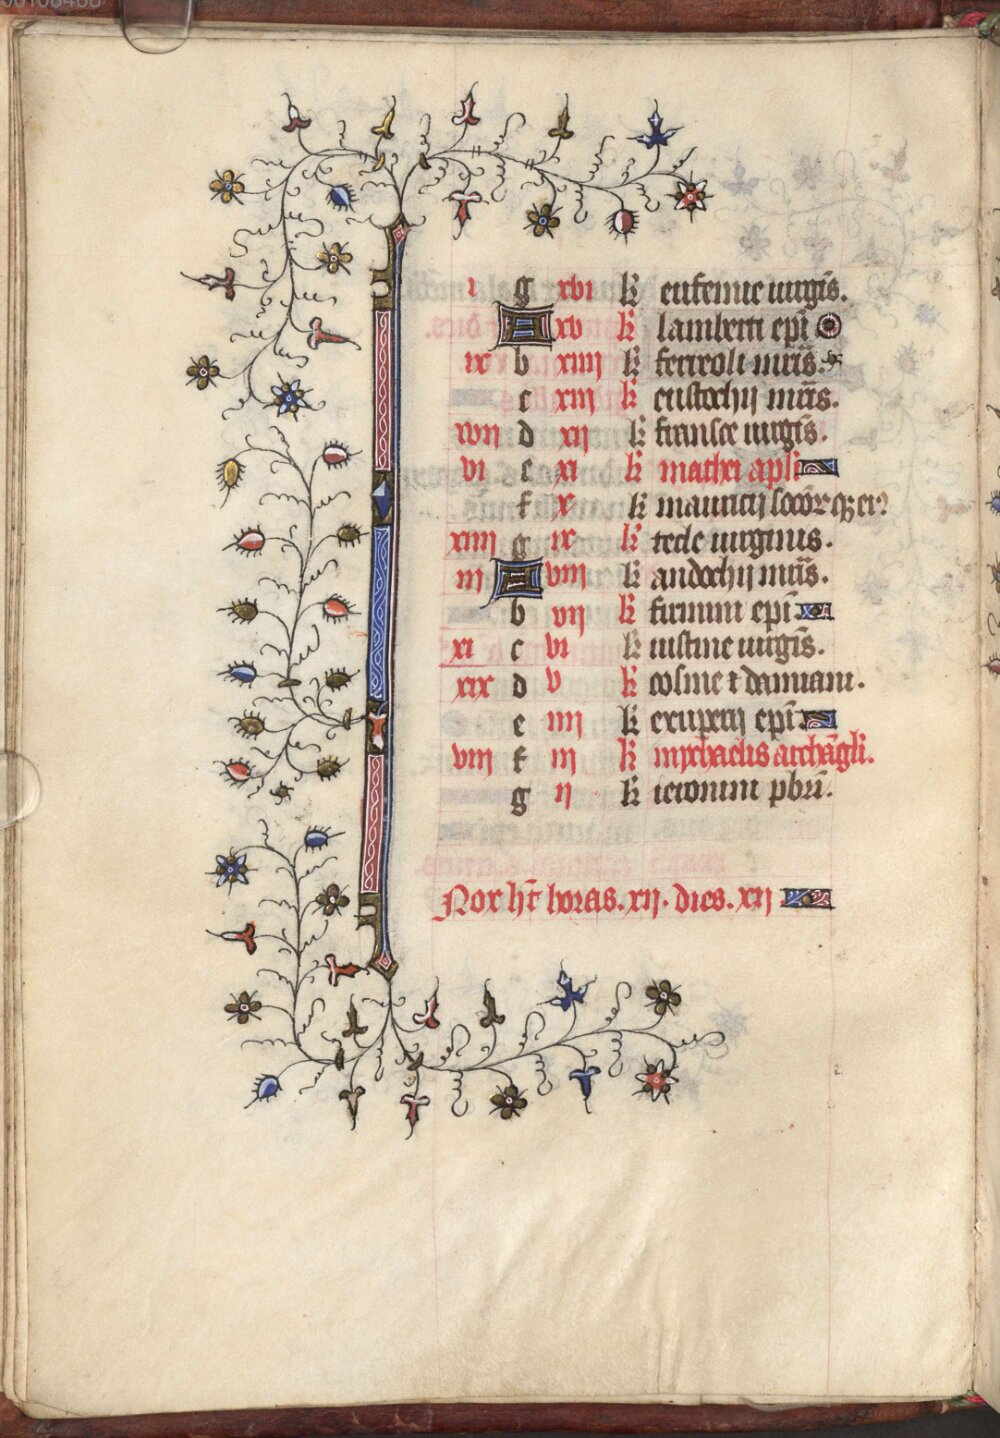 i g xvi kł eufemie uirgīs.
A xv kł lamberti epī
ix b xiiij kł ferreoli mrīs.
c xiij kł eustochij mrīs.
xvij d xij kł fauste uirgīs.
vi e xi kł mathei apłi
f x kł mauricij socōrqȝ ei9
xiiij g ix kł tecle uirginis.
iij A viij kł andochij mrīs.
b vij kł firmini epī
xi c vi kł iustine uirgīs.
xix d v kł cosme ⁊ damiani.
e iiij kł exuperij epī
viij f iij kł mychaelis archāgłi.
g ij kł ieronimi pbrī.
Nox hт̄ horas. xij. dies. xij